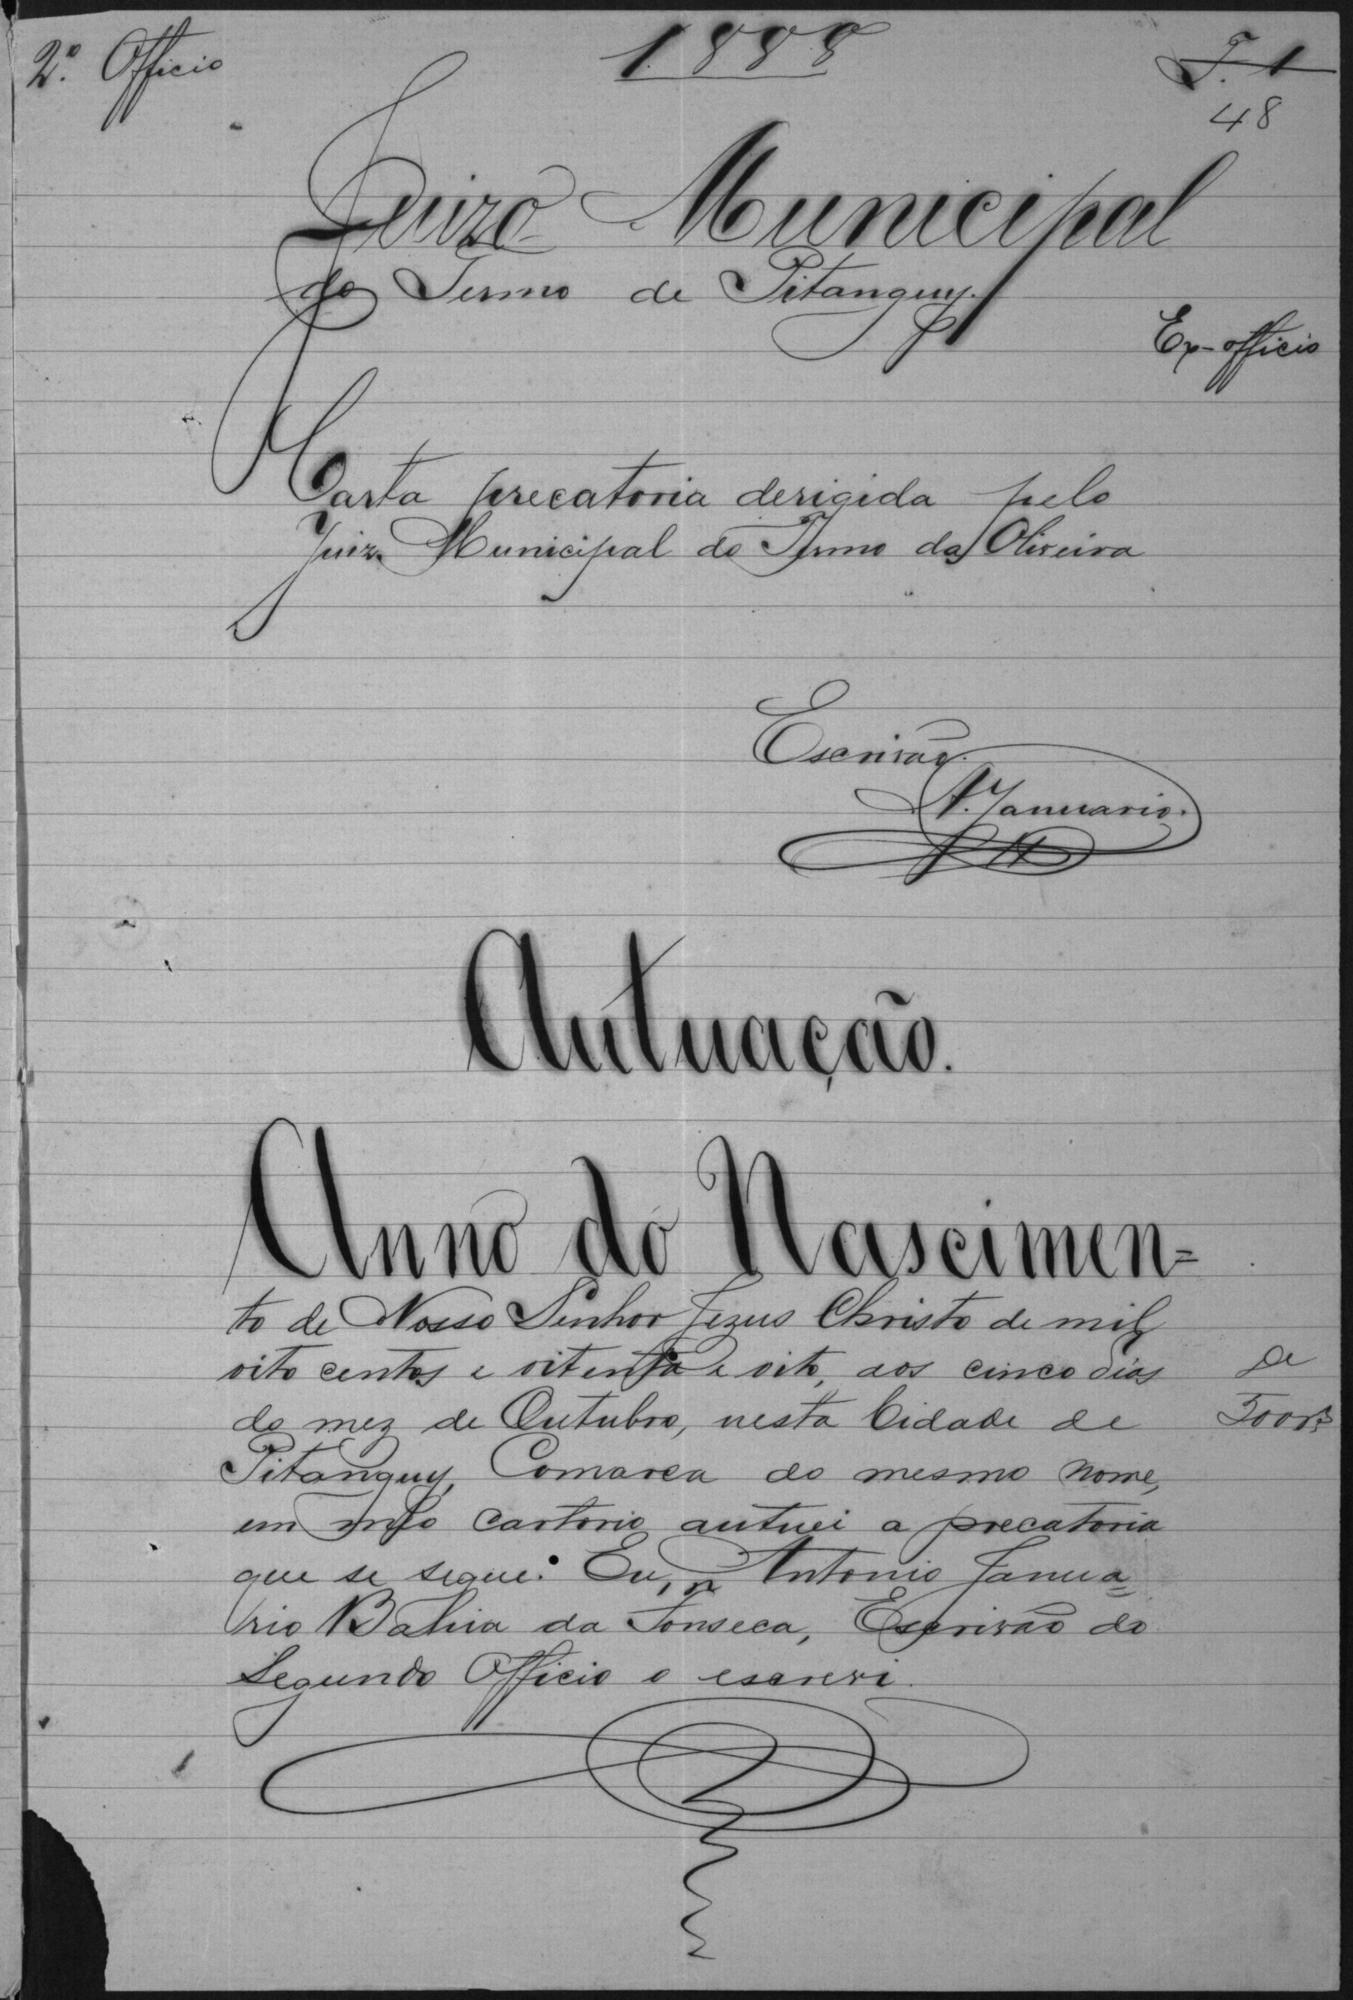 2º. Officio
1888
F. 1
48
Juizo Municipal
do Termo de Pitanguy.
Ex-officio
Carta precatoria derigida pelo
Juiz Municipal do Termo da Oliveira
Escrivão.
A. Januario.
Autuação.
Anno do Nascimen=
to de Nosso Senhor Jezus Christo de mil
oito centos e oitenta e oito, aos cinco dias
do mez de Outubro, nesta Cidade de
Pitanguy, Comarca do mesmo nome,
em meo cartorio autuei a precatoria
que se segue: Eu, Antonio Janua=
rio Bahia da Fonseca, Escrivão do
Segundo Officio o escrevi.
De
500rs